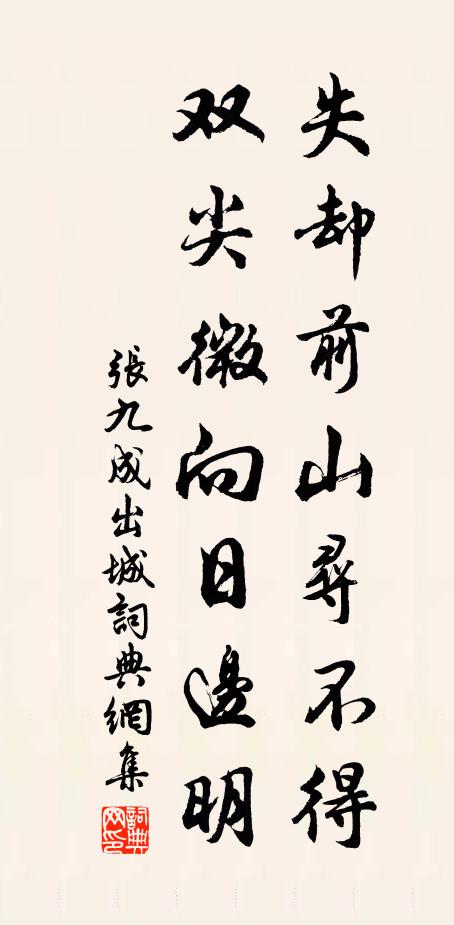 失却前山尋不得
双尖微向日邊明
張九成出城詞典網集
詞典网印